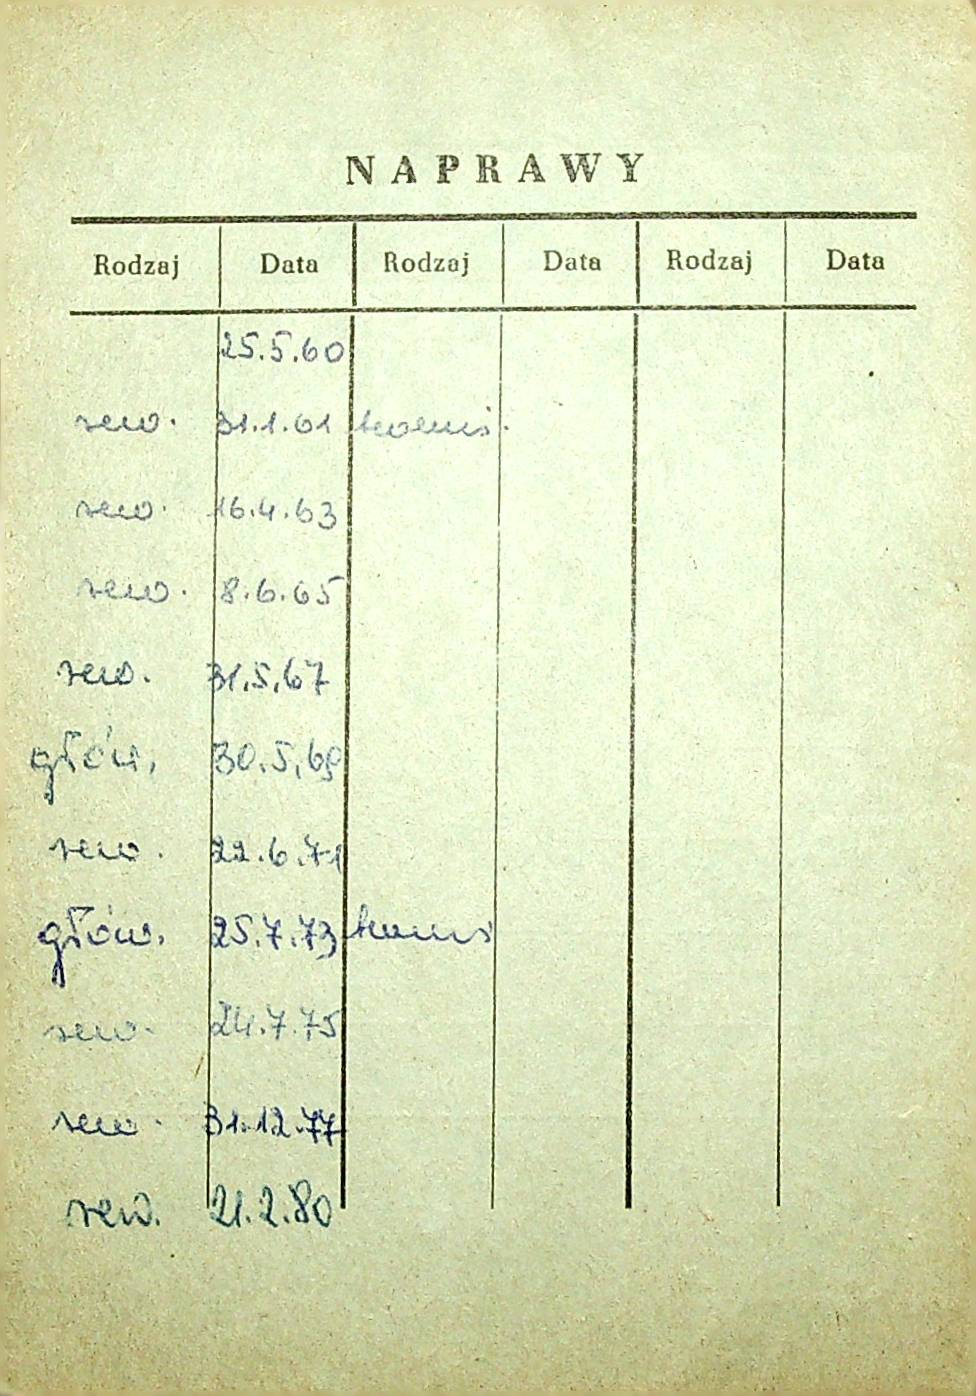 NAPRAWY
Rodzaj Data Rodzaj Data Rodzaj Data
25.5.60
rew. 31.1.61
rew. 16.4.63
rew. 8.6.65
rew. 31.5.67
głów. 30.5.69
rew. 22.6.71
głów. 25.7.73
rew. 24.7.75
rew. 31.12.77
rew. 21.2.80